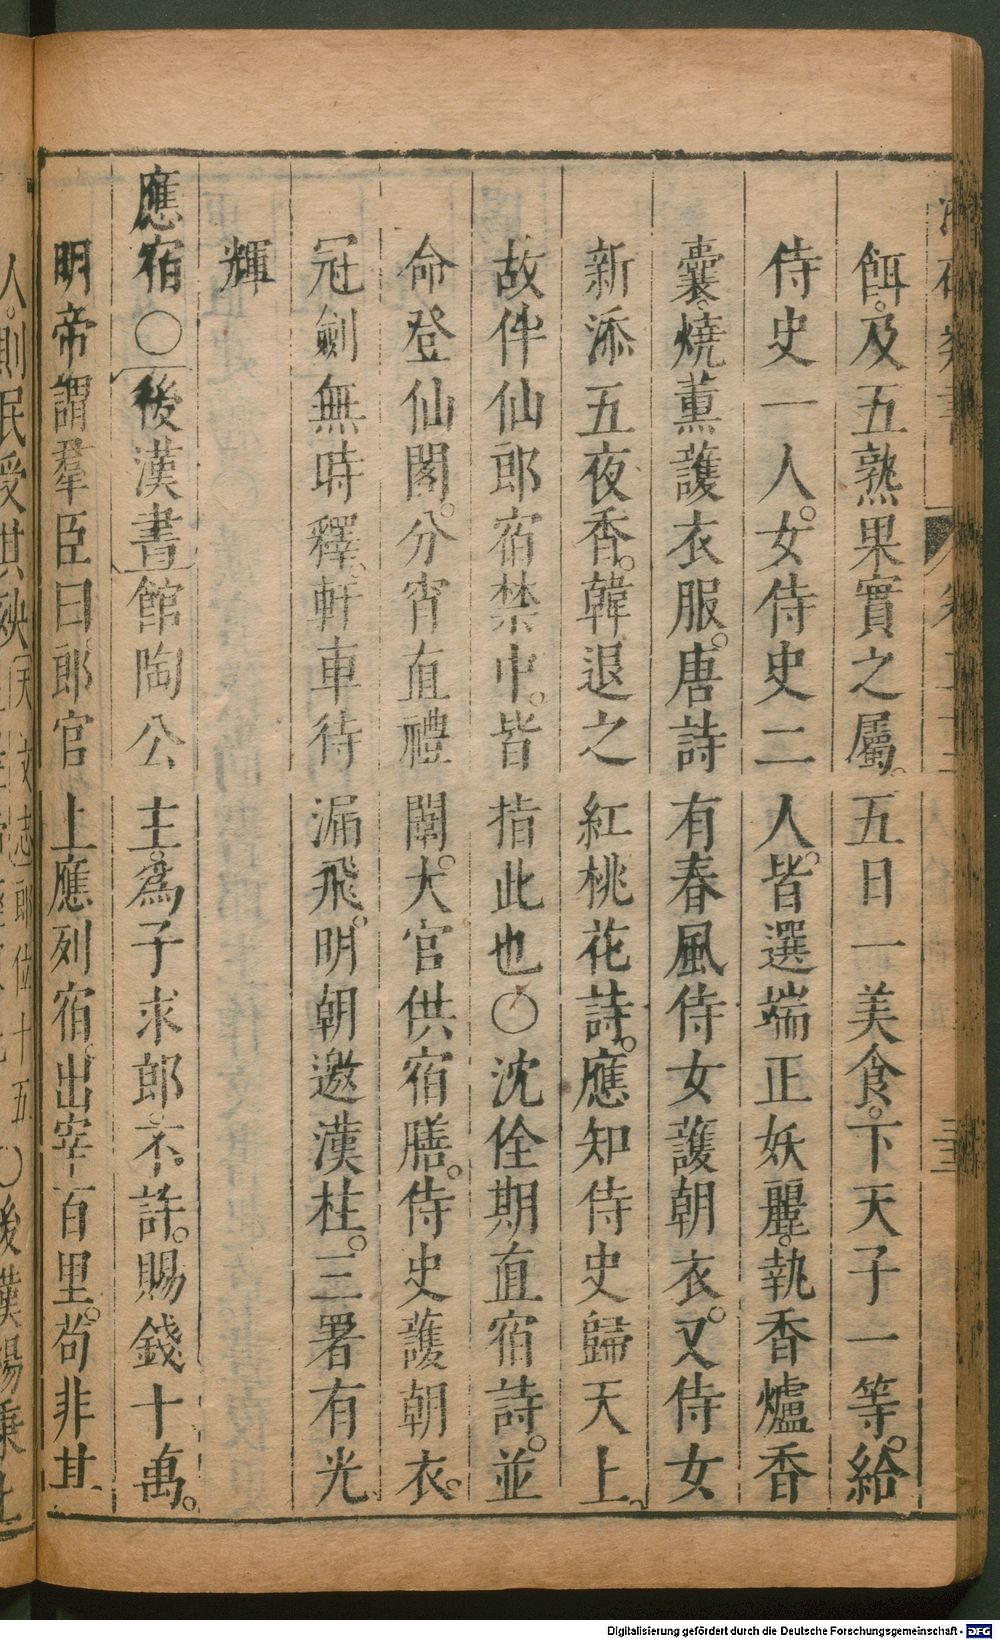 餌。及五熟果實之屬。五日一美食。下天子一等。給
侍史一人。女侍史二人。皆選端正妖麗。執香爐香
囊。燒薰護衣服。唐詩有春風侍女護朝衣。又侍女
新添五夜香。韓退之紅桃花詩。應知侍史歸天上。
故伴仙郎宿禁中。皆指此也〇沈佺期直宿詩。並
命登仙閣。分宵直禮闈。大官供宿膳。侍史護朝衣。
冠劍無時釋。軒車待漏飛。明朝邀漢柱。三署有光
輝
應宿〇後漢書館陶公主。為子求郎。不許。賜錢十萬。
明帝謂羣臣曰。郎官上應列宿。出宰百里。苟非其
人。則民受其殃天文志郎位十五〇後漢楊秉上
Digitalisierung gefördert durch die Deutsche Forschungsgemeinschaft - DFG